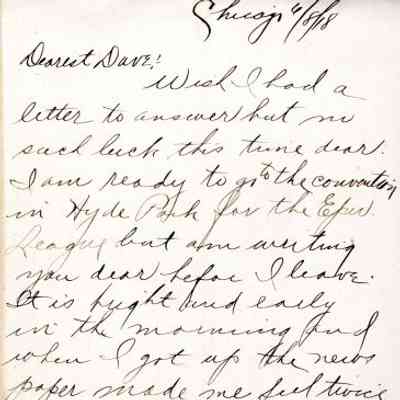 Chicago 4/8/18
Dearest Dave!
Wish I had a
letter to answer but no
such luck this time dear.
I am ready to go to the convention
in Hyde Park for the Epw.
League but am writing
you dear before I leave.
It is bright and early
in the morning and
when I got up the news
paper made me feel twice